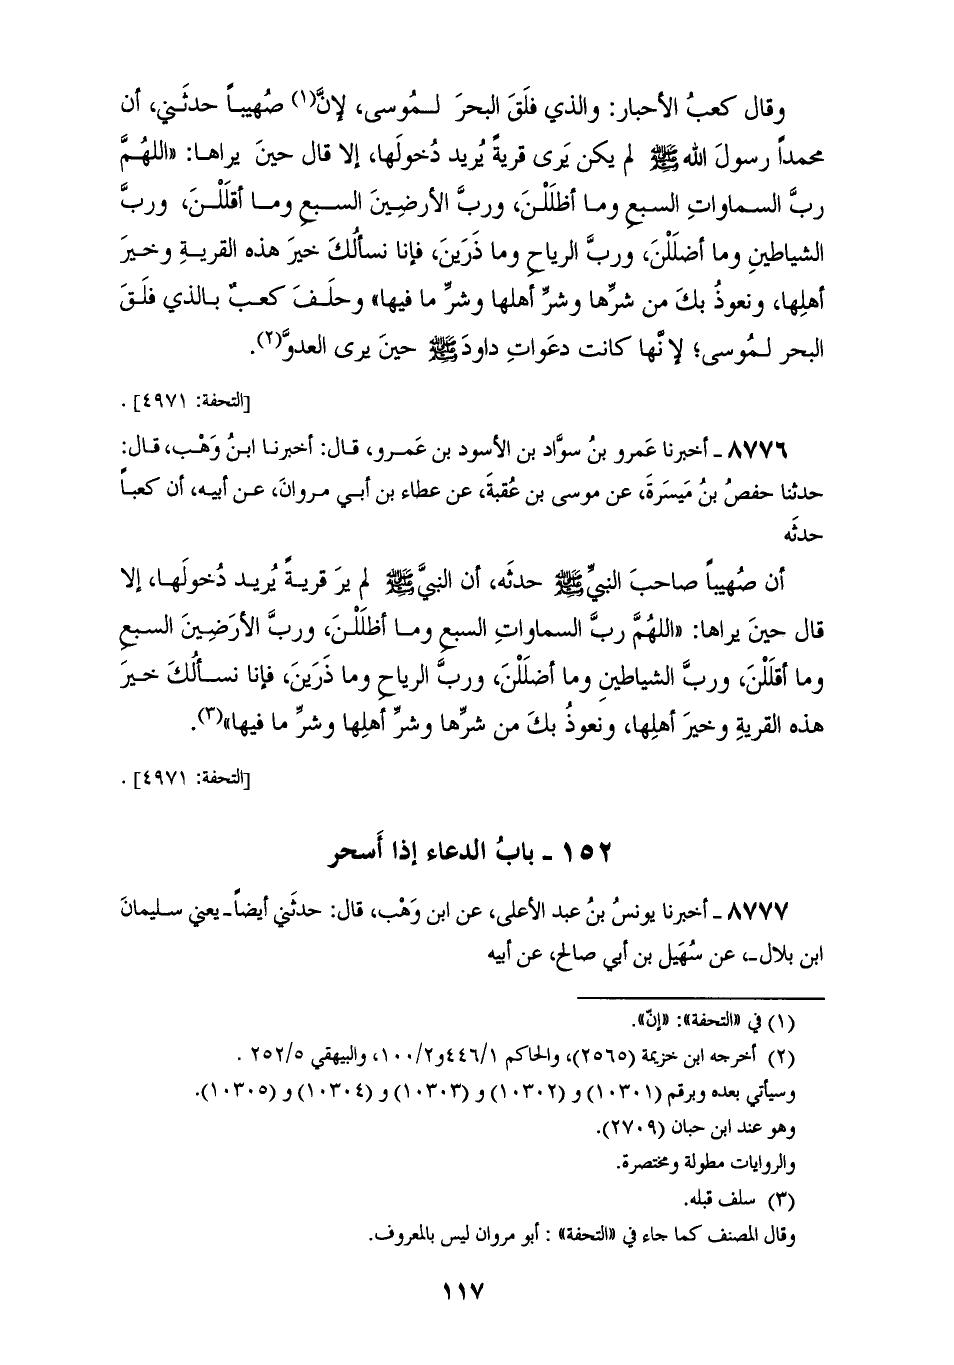 وقال كعبُ الأحبار: والذي فلَقَ البحرَ لـمُوسى، لإنَّ(١) صُهيباً حدثَني، أن
محمداً رسولَ الله ﷺ لم يكن يَرى قريةً يُريد دُخولَها، إلا قال حينَ يراها: «اللهُمَّ
ربَّ السماواتِ السبعِ وما أظلَلْنَ، وربَّ الأرضِينَ السبعِ وما أقلَلْنَ، وربَّ
الشياطينِ وما أضلَلْنَ، وربَّ الرياحِ وما ذَرَينَ، فإنا نسألُكَ خيرَ هذه القريةِ وخيرَ
أهلِها، ونعوذُ بكَ من شرِّها وشرِّ أهلها وشرِّ ما فيها» وحلَفَ كعبٌ بالذي فلَقَ
البحر لـمُوسى؛ لإنَّها كانت دعَواتِ داودَ ﷺ حينَ يرى العدوَّ(٢).
[التحفة: ٤٩٧١] .
٨٧٧٦ ـ أخبرنا عَمرو بنُ سوَّاد بن الأسود بن عَمرو، قال: أخبرنا ابنُ وَهْب، قال:
حدثنا حفصُ بنُ مَيسَرةَ، عن موسى بن عُقبةَ، عن عطاء بن أبي مروانَ، عن أبيه، أن كعباً
حدثَه
أن صُهيباً صاحبَ النبيِّ ﷺ حدثَه، أن النبيَّ ﷺ لم يرَ قريةً يُريد دُخولَها، إلا
قال حينَ يراها: «اللهُمَّ ربَّ السماواتِ السبعِ وما أظلَلْنَ، وربَّ الأرَضِينَ السبعِ
وما أقلَلْنَ، وربَّ الشياطينِ وما أضلَلْنَ، وربَّ الرياحِ وما ذَرَينَ، فإنا نسألُكَ خيرَ
هذه القريةِ وخيرَ أهلِها، ونعوذُ بكَ من شرِّها وشرِّ أهلِها وشرِّ ما فيها»(٣).
[التحفة: ٤٩٧١] .
١٥٢ ـ بابُ الدعاء إذا أَسحر
٨٧٧٧ ـ أخبرنا يونسُ بنُ عبد الأعلى، عن ابن وَهْب، قال: حدثَني أيضاً ـ يعني سليمانَ
ابن بلال ـ، عن سُهَيل بن أبي صالح، عن أبيه
(١) في «التحفة»: «إنّ».
(٢) أخرجه ابن خزيمة (٢٥٦٥)، والحاكم ٤٤٦/١و١٠٠/٢، والبيهقي ٢٥٢/٥ .
وسيأتي بعده وبرقم (١٠٣٠١) و (١٠٣٠٢) و (١٠٣٠٣) و (١٠٣٠٤) و (١٠٣٠٥).
وهو عند ابن حبان (٢٧٠٩).
والروايات مطولة ومختصرة.
(٣) سلف قبله.
وقال المصنف كما جاء في «التحفة» : أبو مروان ليس بالمعروف.
١١٧